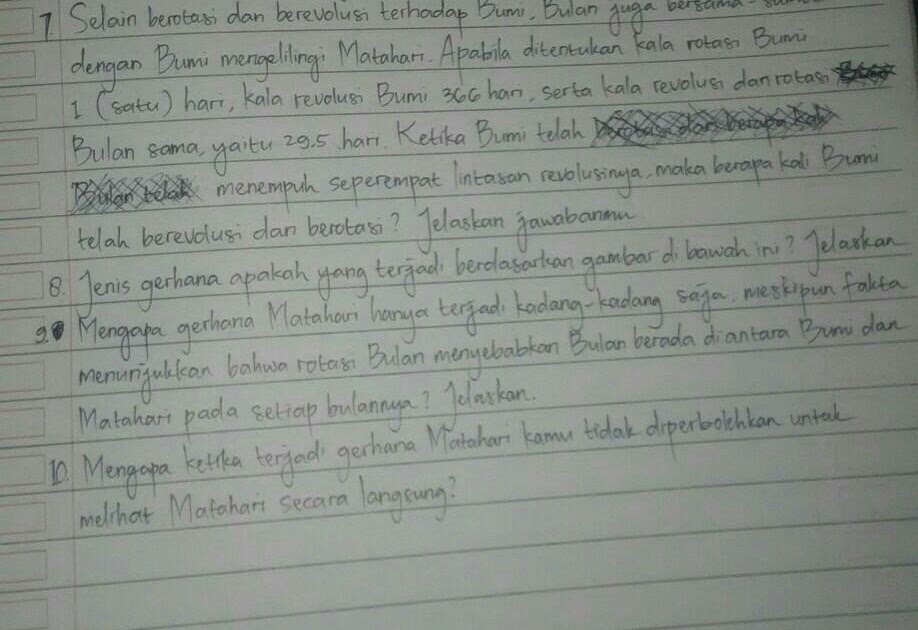 7. Selain berotasi dan berevolusi terhadap Bumi, Bulan juga bersama-sama
dengan Bumi mengelilingi Matahari. Apabila ditentukan kala rotasi Bumi
1 (satu) hari, kala revolusi Bumi 366 hari, serta kala revolusi dan rotasi
Bulan sama, yaitu 29,5 hari. Ketika Bumi telah
menempuh seperempat lintasan revolusinya, maka berapa kali Bumi
telah berevolusi dan berotasi? Jelaskan jawabanmu
8. Jenis gerhana apakah yang terjadi berdasarkan gambar di bawah ini? Jelaskan
9. Mengapa gerhana Matahari hanya terjadi kadang-kadang saja, meskipun fakta
menunjukkan bahwa rotasi Bulan menyebabkan Bulan berada diantara Bumi dan
Matahari pada setiap bulannya? Jelaskan.
10. Mengapa ketika terjadi gerhana Matahari kamu tidak diperbolehkan untuk
melihat Matahari secara langsung?